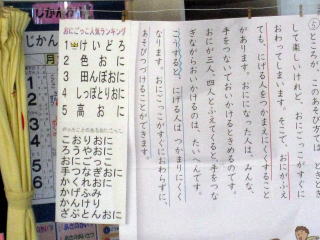 じかんわり
じかん
月
1
2
3
4
5
6
おにごっこ人気ランキング
1 けいどろ
2 色おに
3 田んぼおに
4 しっぽとりおに
5 高おに
やったことのあるおにごっこ
こおりおに
ろうやおに
おにごっこ
手つなぎおに
かくれおに
かげふみ
かんけり
ざぶとんおに
⑤ところが、このあそび方では、ときどき
して楽しいけれど、おにごっこがすぐに
おわってしまいます。そこで、おにがふえ
ても、にげる人をつかまえにくくすること
があります。おにになった人は、みんな、
手をつないでおいかけるときめるのです。
おにが三人、四人とふえてくると、手をつな
ぎながらおいかけるのは、たいへんです。
こうすると、にげる人は、つかまりにくく
なります。おにごっこがすぐにおわらずに、
あそびつづけることができます。